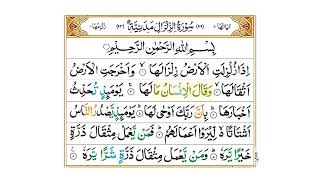 سُوْرَةُ الزِّلْزَالِ مَدَنِيَّةٌ
بِسْمِ اللهِ الرَّحْمٰنِ الرَّحِيْمِ
اِذَا زُلْزِلَتِ الْاَرْضُ زِلْزَالَهَا ۙ وَاَخْرَجَتِ الْاَرْضُ
اَثْقَالَهَا ۙ وَقَالَ الْاِنْسَانُ مَا لَهَا ۚ يَوْمَئِذٍ تُحَدِّثُ
اَخْبَارَهَا ۙ بِاَنَّ رَبَّكَ اَوْحٰى لَهَا ؕ يَوْمَئِذٍ يَّصْدُرُ النَّاسُ
اَشْتَاتًا ۙ لِّيُرَوْا اَعْمَالَهُمْ ؕ فَمَنْ يَّعْمَلْ مِثْقَالَ ذَرَّةٍ
خَيْرًا يَّرَهٗ ؕ وَمَنْ يَّعْمَلْ مِثْقَالَ ذَرَّةٍ شَرًّا يَّرَهٗ